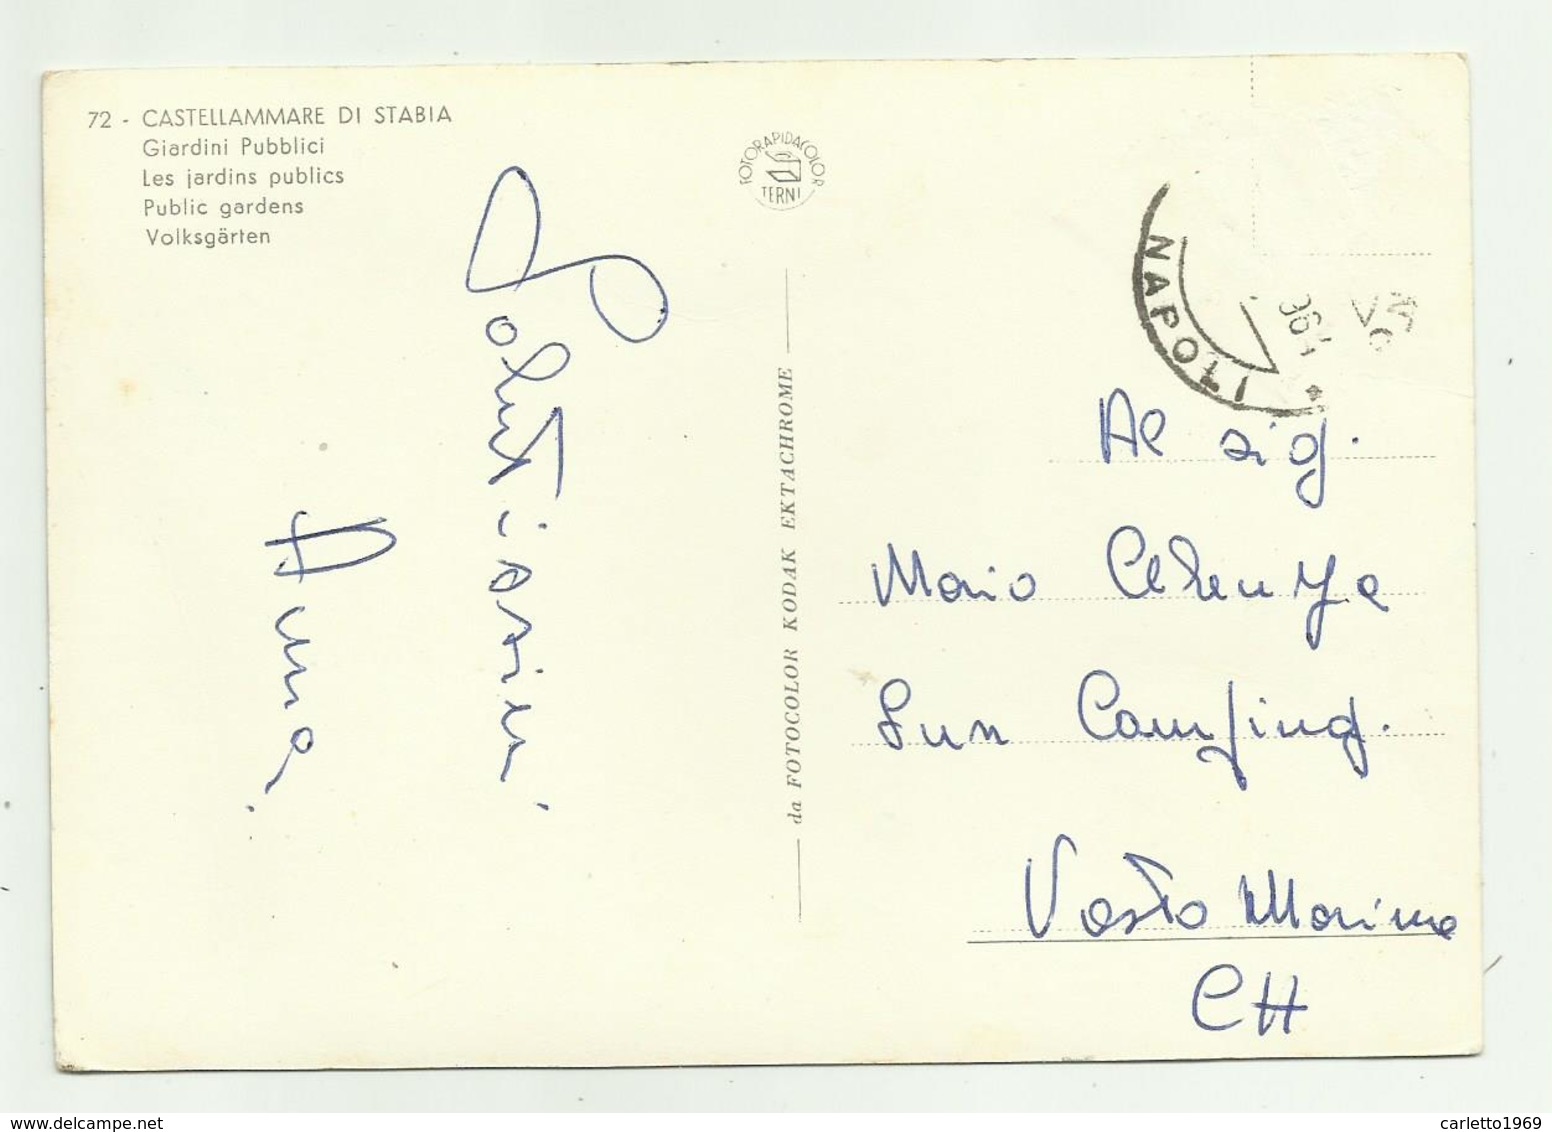 72 - CASTELLAMMARE DI STABIA
Giardini Pubblici
Les jardins publics
Public gardens
Volksgärten
FOTORAPIDACOLOR
TERNI
Saluti
Anna.
da FOTOCOLOR KODAK EKTACHROME
NAPOLI
Al sig.
Mario
Sun Camping.
Vasto Marina
CH
carletto1969